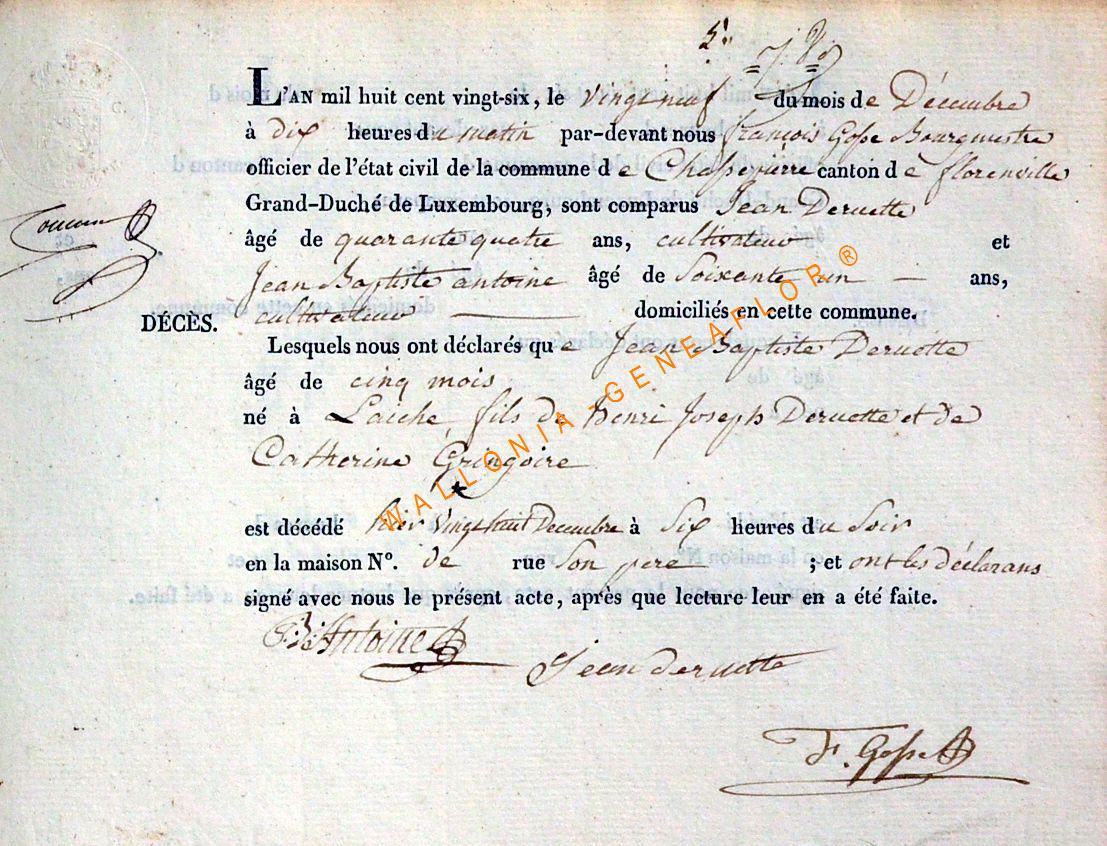 L'AN mil huit cent vingt-six, le vingt neuf du mois de Décembre
à dix heures du matin par-devant nous françois Gosse Bourgmestre
officier de l'état civil de la commune de Chassepierre canton de florenville
Grand-Duché de Luxembourg, sont comparus Jean Deruette
âgé de quarante quatre ans, cultivateur et
Jean Baptiste antoine âgé de Soixante un — ans,
cultivateur — domiciliés en cette commune.
DÉCÈS.
Lesquels nous ont déclarés que Jean Baptiste Deruette
âgé de cinq mois
né à Laiche, fils de henri Joseph Deruette et de
Catherine Gringoire
est décédé hier vingt huit Decembre à Six heures du Soir
en la maison N°. de rue Son pere ; et ont les déclarans
signé avec nous le présent acte, après que lecture leur en a été faite.
Antoine
Jean deruette
F. Gosse
WALLONIA-GENEAFLOR ®